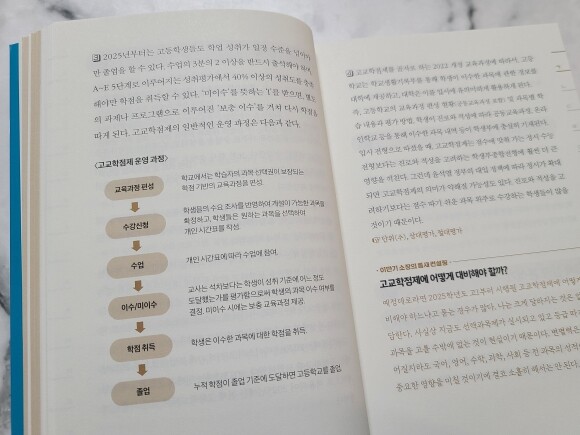 2025년부터는 고등학생들도 학업 성취가 일정 수준을 넘어야
만 졸업을 할 수 있다. 수업의 3분의 2 이상을 반드시 출석해야 하며,
A~E 5단계로 이루어지는 성취평가에서 40% 이상의 성취도를 충족
해야만 학점을 취득할 수 있다. '미이수'를 뜻하는 'I'를 받으면, 별도
의 과제나 프로그램으로 이루어진 '보충 이수'를 거쳐 다시 학점을
따게 된다. 고교학점제의 일반적인 운영 과정은 다음과 같다.
<고교학점제 운영 과정>
교육과정 편성
학교에서는 학습자의 과목 선택권이 보장되는
학점 기반의 교육과정을 편성.
수강신청
학생들의 수요 조사를 반영하여 개설이 가능한 과목을
확정하고, 학생들은 원하는 과목을 선택하여
개인 시간표를 작성.
수업
개인 시간표에 따라 수업에 참여.
이수/미이수
교사는 석차보다는 학생이 성취 기준에 어느 정도
도달했는가를 평가함으로써 학생의 과목 이수 여부를
결정. 미이수 시에는 보충 교육과정 제공.
학점 취득
학생은 이수한 과목에 대한 학점을 취득.
졸업
누적 학점이 졸업 기준에 도달하면 고등학교를 졸업.
고교학점제를 골자로 하는 2022 개정 교육과정에 따라서, 고등
학교는 학교생활기록부를 통해 학생이 이수한 과목에 관한 정보를
대학에 제공하고, 대학은 이를 입시에 유의미하게 활용하게 된다.
고등학교의 교육과정 편성 현황(공동교육과정 포함) 및 과목별 학
습 내용과 평가 방법, 학생이 진로와 적성에 따라 공동교육과정, 온라
인학교 등을 통해 이수한 과목 내역 등이 학생부에 충실히 기재된다.
입시 전형으로 따졌을 때, 고교학점제는 점수에 맞춰 가는 정시 수능
전형보다는 진로와 적성을 고려하는 학생부종합전형에 훨씬 더 큰
영향을 미친다. 그런데 윤석열 정부의 대입 정책에 따라 정시가 확대
되면 고교학점제의 의미가 약해질 가능성도 있다. 진로와 적성을 고
려하기보다는 점수 따기 쉬운 과목 위주로 수강하는 학생들이 많을
것이기 때문이다.
단위(수), 상대평가, 절대평가
이만기 소장의 틈새 컨설팅
고교학점제에 어떻게 대비해야 할까?
예정대로라면 2025학년도 고1부터 시행될 고교학점제에 어떻게
비해야 하느냐고 묻는 경우가 많다. 나는 크게 달라지는 것은 없
답한다. 사실상 지금도 선택과목제가 실시되고 있고 등급 따
과목을 고를 수밖에 없는 것이 현실이기 때문이다.
어질지라도 국어, 영어, 수학, 과학, 사회 등 한 과목의 성적
중요한 영향을 미칠 것이기에 결코 소홀히 해서는 안 된다.